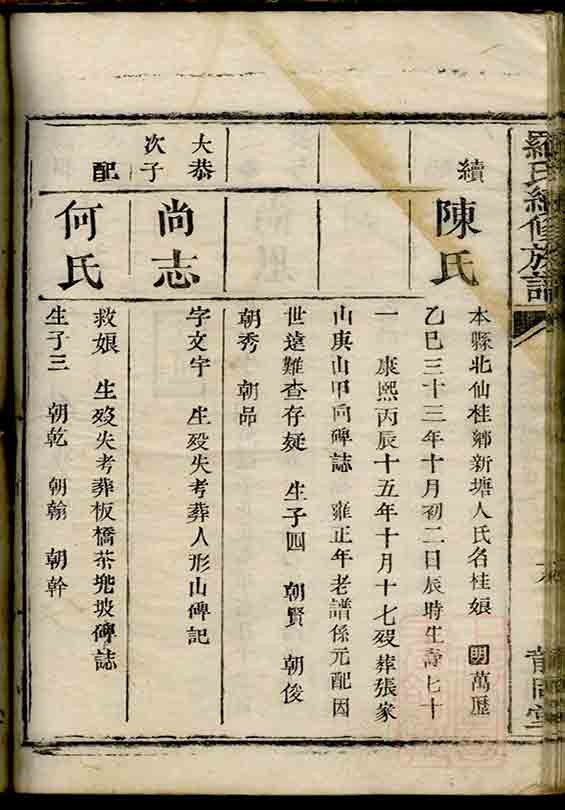 羅氏續修族譜
續
陳氏
本縣北仙桂鄉新塘人氏名桂娘 明萬歷
乙巳三十三年十月初二日辰時生壽七十
一 康熙丙辰十五年十月十七歿葬張家
山庚山甲向碑誌 雍正年老譜係元配因
世遠難查存疑 生子四 朝賢 朝俊
朝秀 朝昂
大恭
次子
尚志
字文宇 生歿失考葬人形山碑記
配
何氏
救娘 生歿失考葬板橋茶兠坡碑誌
生子三 朝乾 朝翰 朝幹